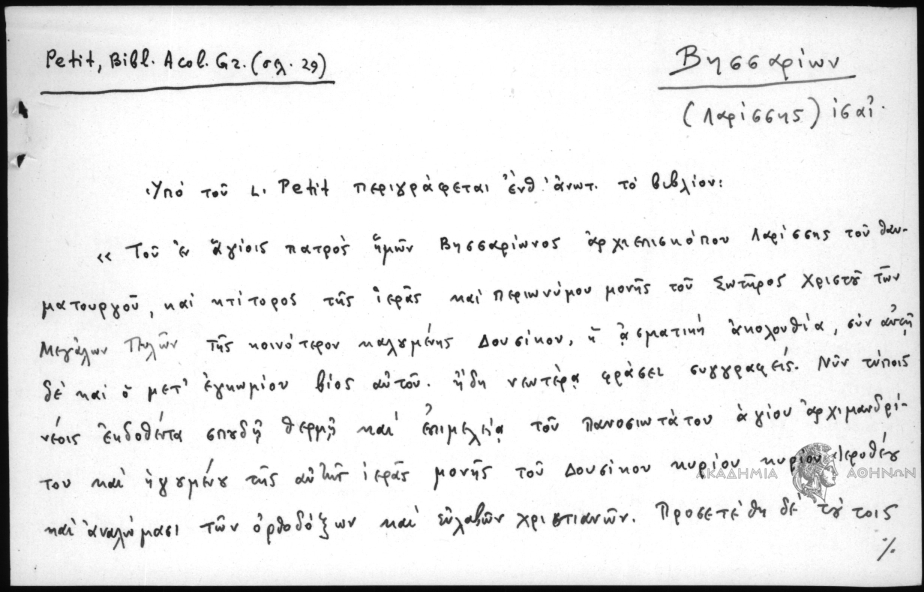 Petit, Bibl. Acol. Gr. (σελ. 29)
Βησσαρίων
(Λαρίσσης) ἰσαΐ.
Ὑπό τοῦ L. Petit περιγράφεται ἐνθ' ἀνωτ. τό βιβλίον:
«Τοῦ ἐν ἁγίοις πατρός ἡμῶν Βησσαρίωνος ἀρχιεπισκόπου Λαρίσσης τοῦ θαυ-
ματουργοῦ, καί κτίτορος τῆς ἱερᾶς καί περιωνύμου μονῆς τοῦ Σωτῆρος Χριστοῦ τῶν
Μεγάλων Πυλῶν τῆς κοινότερον καλουμένης Δουσίκου, ἡ ᾀσματική ἀκολουθία, σύν αὐτῇ
δέ καί ὁ μετ' ἐγκωμίου βίος αὐτοῦ. ἤδη νεωτέρᾳ φράσει συγγραφείς. Νῦν τύποις
νέοις ἐκδοθέντα σπουδῇ θερμῇ καί ἐπιμελείᾳ τοῦ Πανοσιωτάτου ἁγίου ἀρχιμανδρί-
του καί ἡγουμένου τῆς αὐτῆς ἱερᾶς μονῆς τοῦ Δουσίκου κυρίου κυρίου Ἱεροθέου
καί ἀναλώμασι τῶν ὀρθοδόξων καί εὐλαβῶν χριστιανῶν. Προσετέθη δέ τούτοις
%
ΑΚΑΔΗΜΙΑ ΑΘΗΝΩΝ